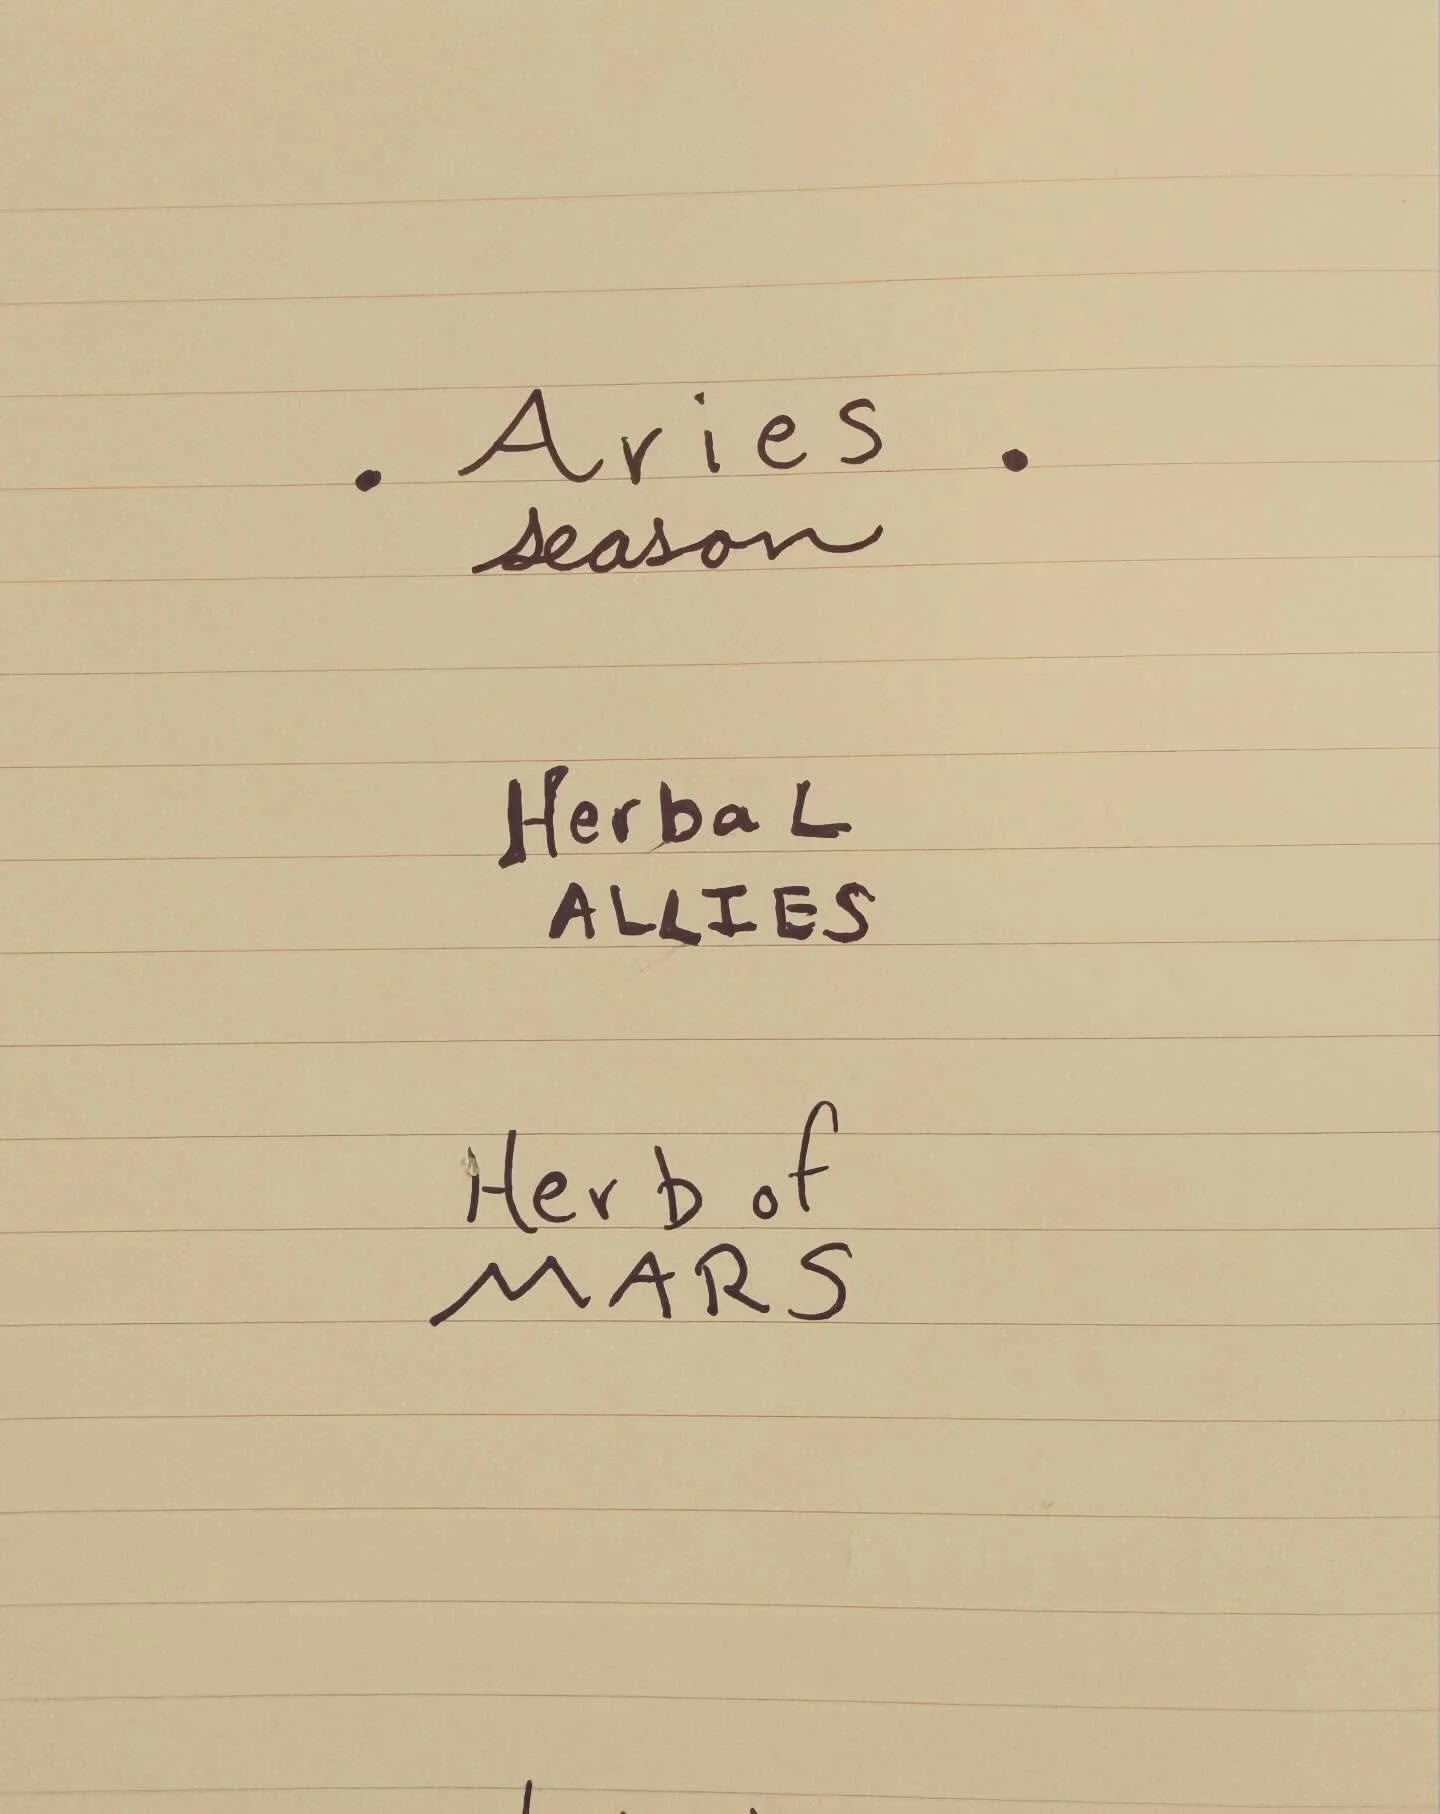 . Aries .
season
HerbaL
ALLIES
Herb of
MARS